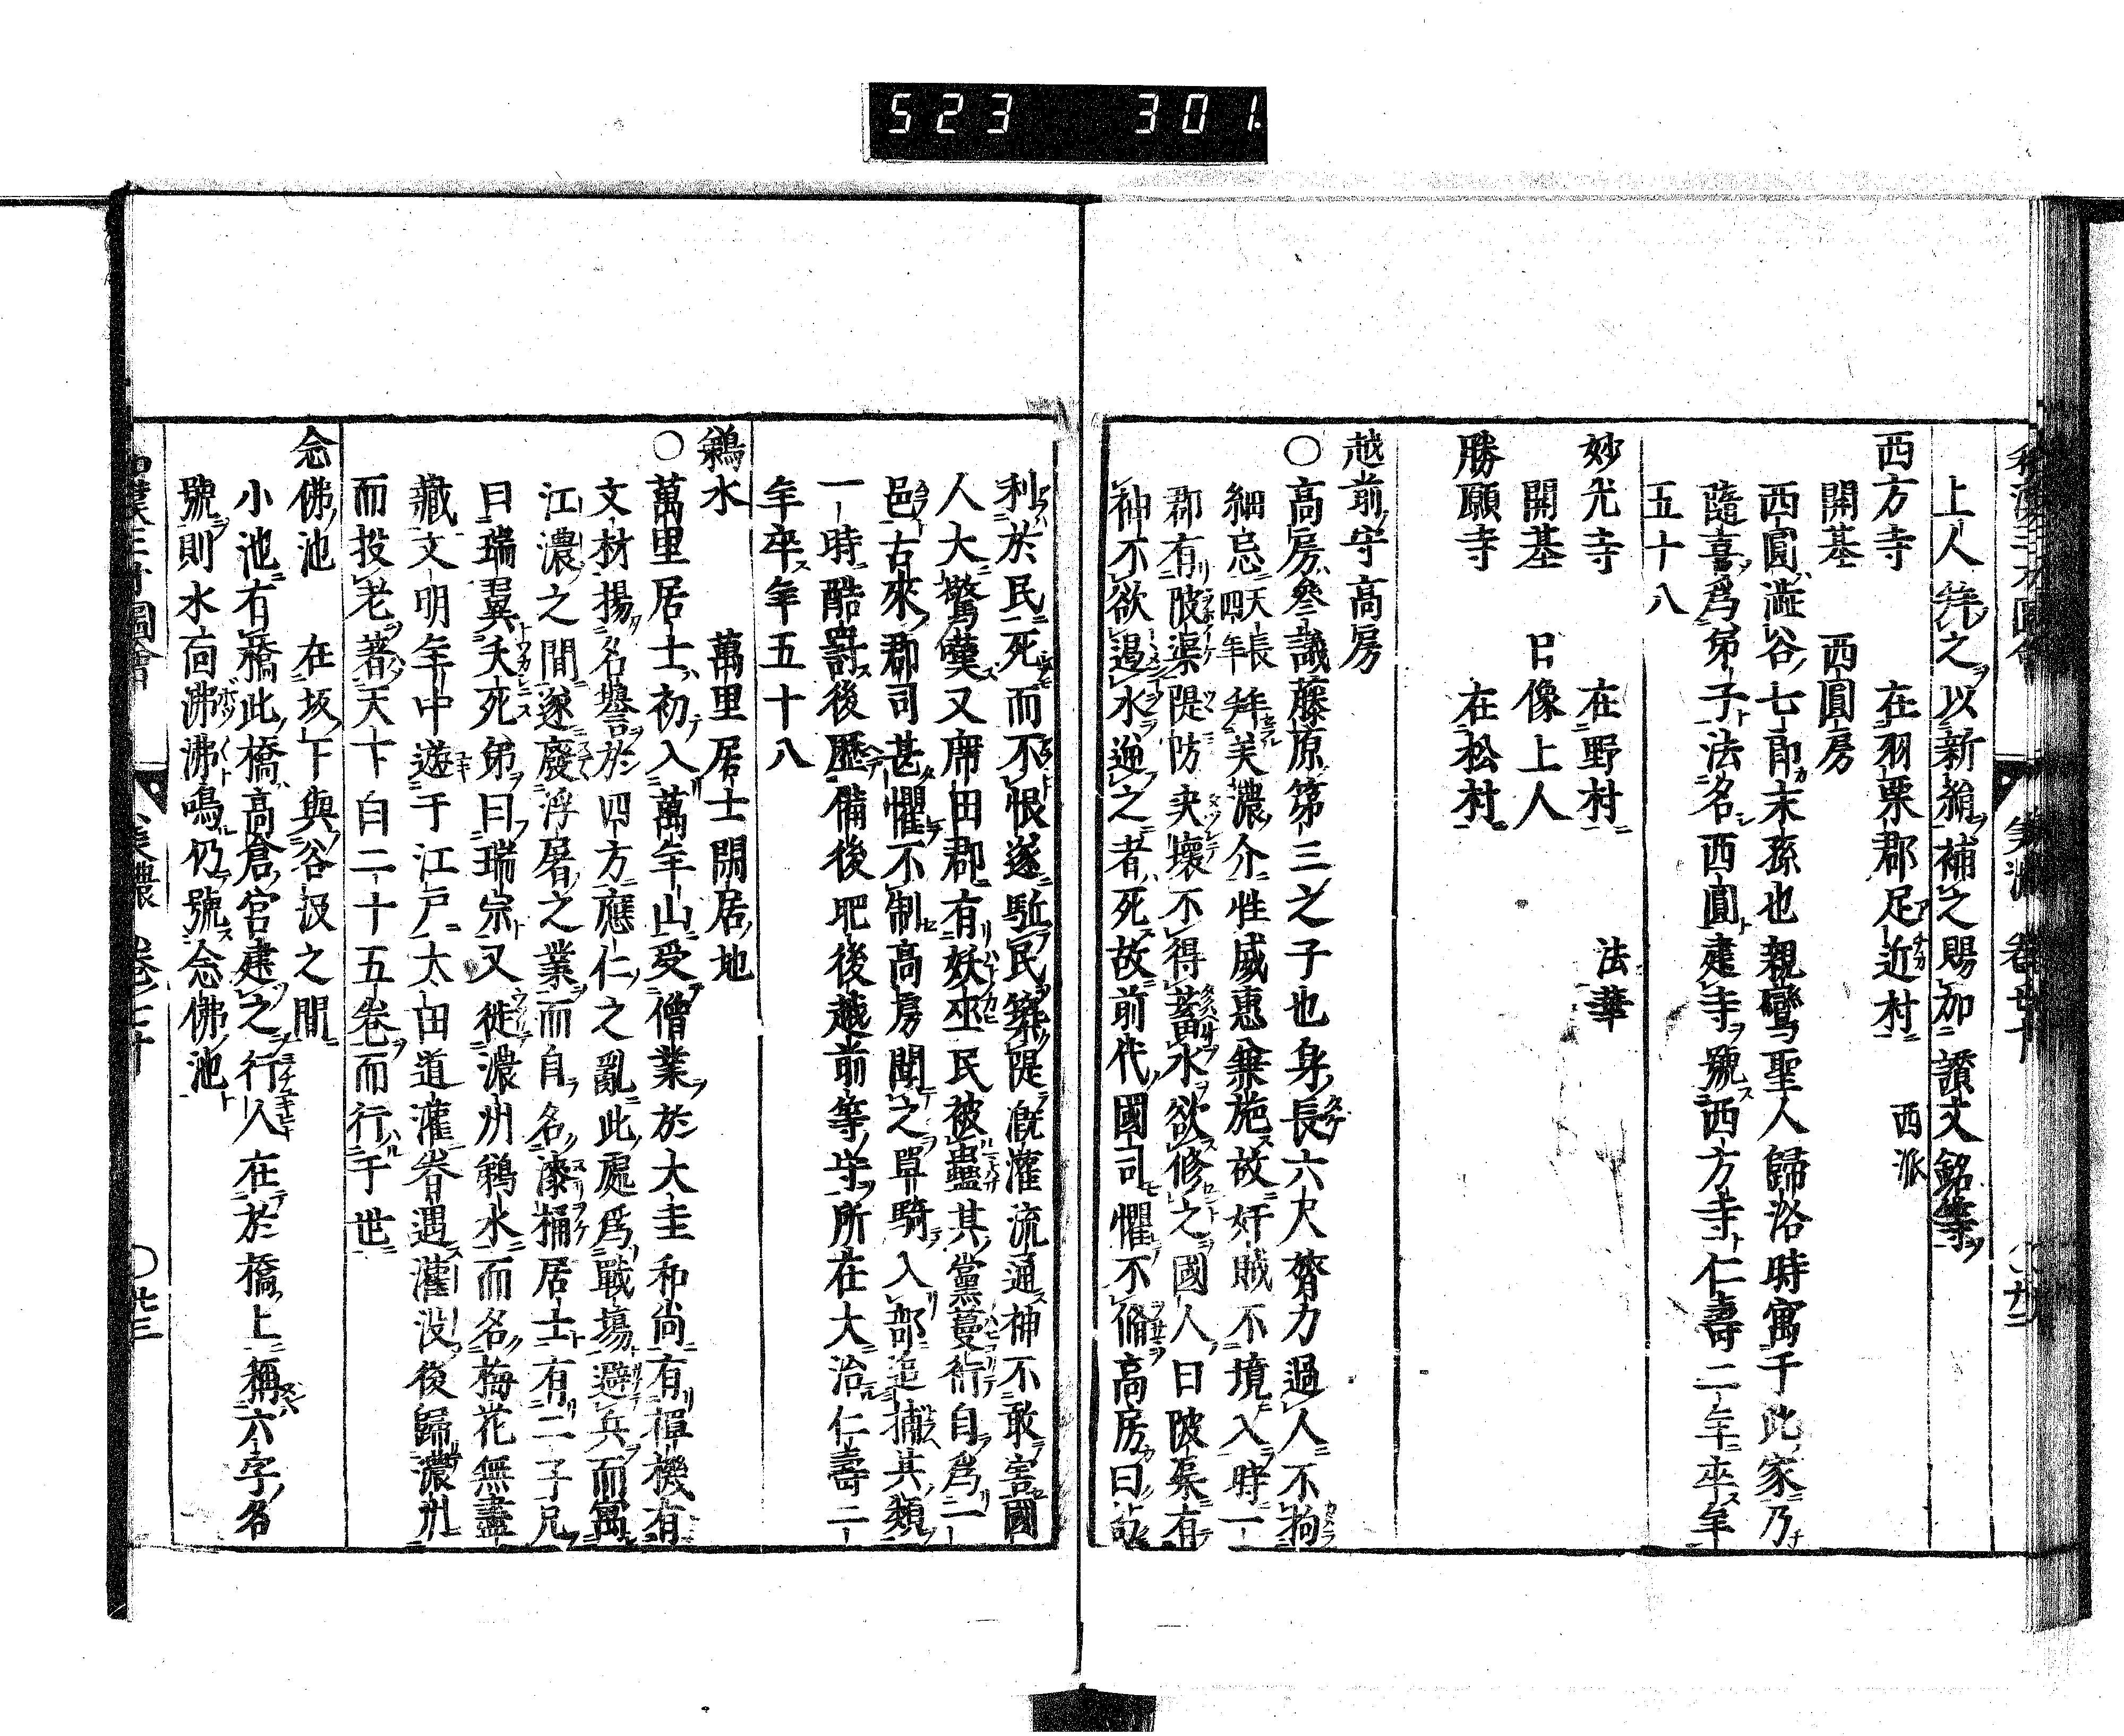 523 301
上人拜之以新絹補之賜加讃文銘等
西方寺 在羽栗郡足近村 西派
開基 西圓房
西圓澁谷七郎末孫也親鸞聖人歸洛時寓于此家乃
隨喜爲弟子法名西圓建寺號西方寺仁壽二年卒年
五十八
妙光寺 在野村 法華
開基 日像上人
勝願寺 在松村
越前守高房
〇高房參議藤原第三之子也身長六尺膂力過人不拘
細忌天長四年拜美濃介性威惠兼施故奸賊不境入時一
郡有陂渠隄防决壞不得蓄水欲修之國人曰陂渠有
神不欲遏水逆之者死故前代國司懼不脩高房曰苟
利於民死而不恨遂駈民築隄漑灌流通神不敢害國
人大驚嘆又席田郡有妖巫民被蠱其黨蔓衍自爲一
邑古來郡司甚懼不制高房聞之單騎入部追捕其類
一時酷罸後歷備後肥後越前等守所在大治仁壽二
年卒年五十八
鵜水 萬里居士閑居地
〇萬里居士初入萬年山受僧業於大圭和尚有禪機有
文材揚名譽於四方應仁之亂此處爲戰塲避兵而寓
江濃之間遂廢浮屠之業而自名漆桶居士有二子兄
曰瑞翼夭死弟曰瑞宗又徙濃州鵜水而名梅花無盡
藏文明年中遊于江戸太田道灌眷遇灌没後歸濃州
而投老著天下白二十五卷而行于世
念佛池 在坂下與谷汲之間
小池有橋此橋高倉官建之行人在於橋上稱六字名
號則水面沸沸鳴仍號念佛池